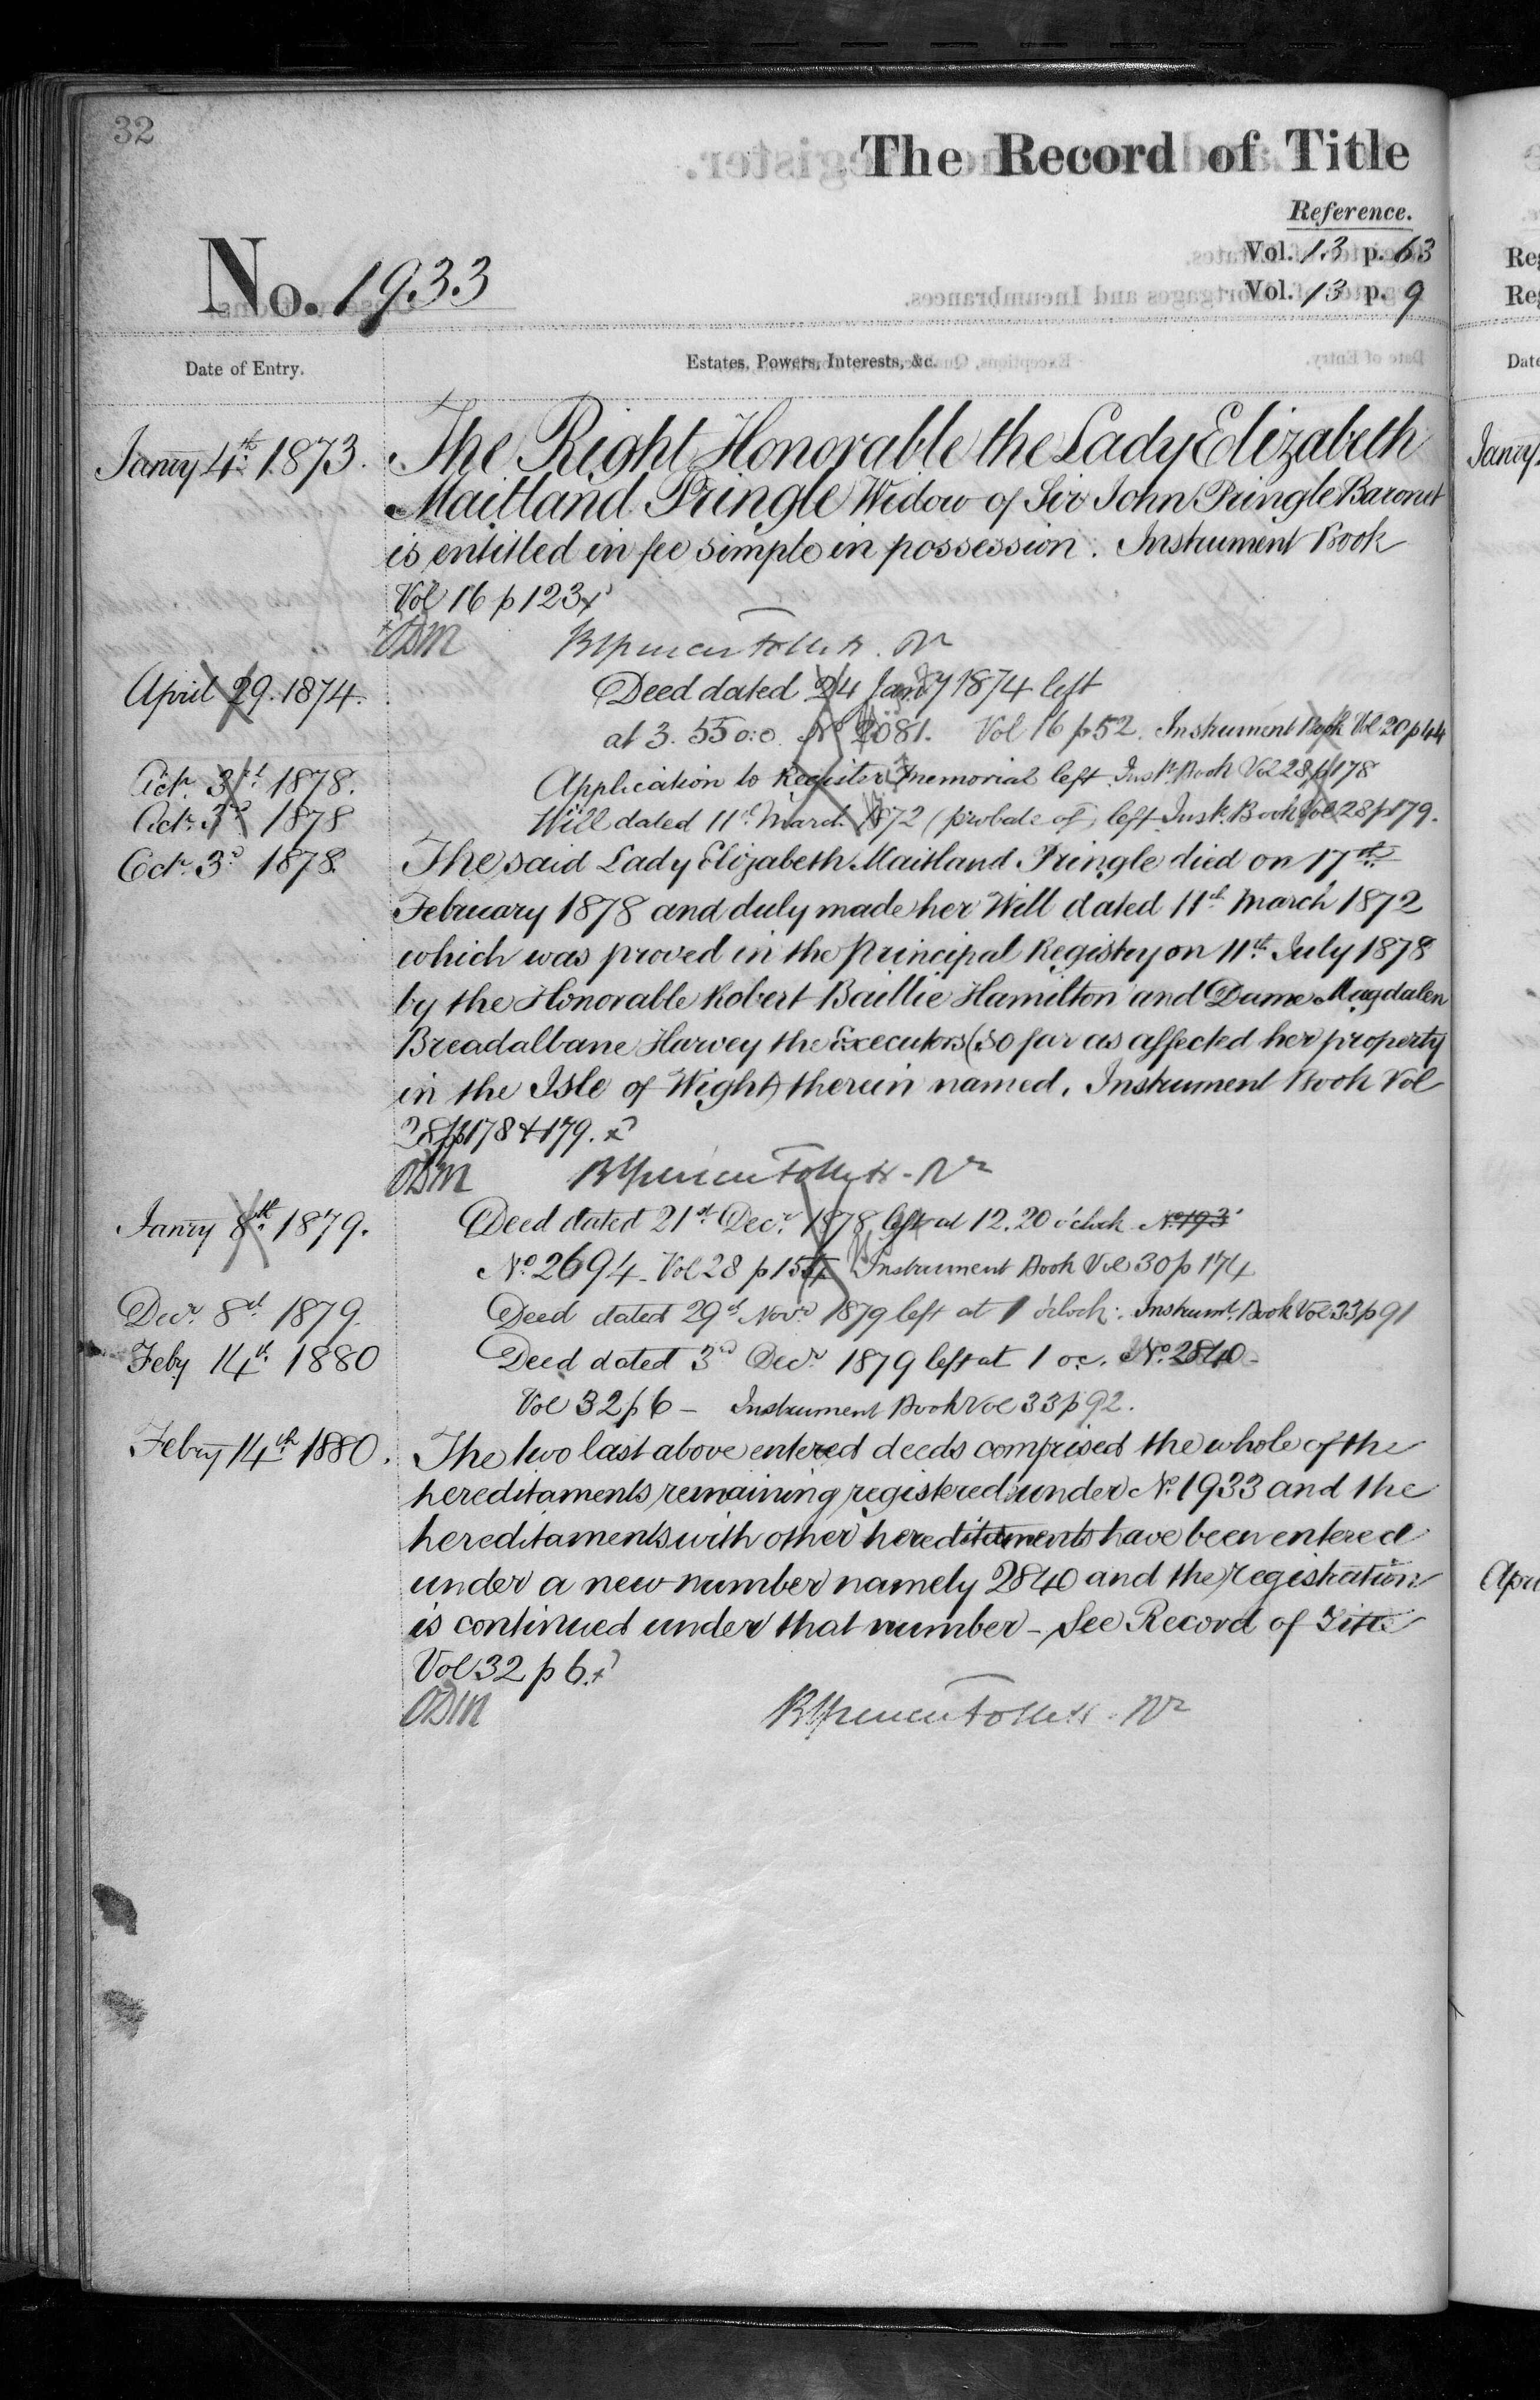 32
The Record of Title
Reference.
Vol. 13 p. 63
No. 1933
Vol. 13 p. 9
Date of Entry.
Estates, Powers, Interests, &c.
Janry 4th 1873. The Right Honorable the Lady Elizabeth
Maitland Pringle Widow of Sir John Pringle Baronet
is entitled in fee simple in possession. Instrument Book
Vol 16 p 123
April 29. 1874. Deed dated 24 Jany 1874 left
at 3. 55 o:c. No 2081. Vol 16 p 52. Instrument Book Vol 20 p 44
Octr 3rd 1878. Application to Register memorial left Inst. Book Vol 28 p 178
Octr 3rd 1878 Will dated 11th March 1872 (probate of) left Inst. Book Vol 28 p 179.
Octr 3d 1878. The said Lady Elizabeth Maitland Pringle died on 17th
February 1878 and duly made her Will dated 11th March 1872
which was proved in the Principal Registry on 11th July 1878
by the Honorable Robert Baillie Hamilton and Dame Magdalen
Breadalbane Harvey the Executors (so far as affected her property
in the Isle of Wight) therein named. Instrument Book Vol
28 pp 178 & 179.
Janry 8th 1879. Deed dated 21st Decr 1878 left at 12.20 o'clock No 193
No 2694 - Vol 28 p 154 Instrument Book Vol 30 p 174
Decr 8th 1879. Deed dated 29th Novr 1879 left at 1 o'clock. Instrumt. Book Vol 33 p 91
Feby 14th 1880 Deed dated 3rd Decr 1879 left at 1 o.c. No 2840 -
Vol 32 p 6 - Instrument Book Vol 33 p 92.
Febry 14th 1880. The two last above entered deeds comprised the whole of the
hereditaments remaining registered under No 1933 and the
hereditaments with other hereditaments have been entered
under a new number namely 2840 and the registration
is continued under that number - See Record of Title
Vol 32 p 6.